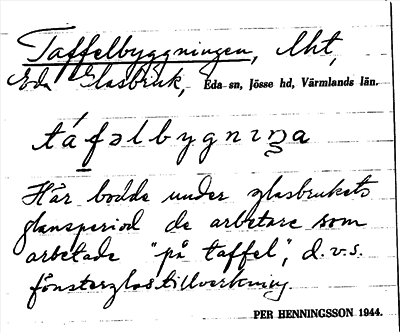 Taffelbyggningen, lht,
Eda Glasbruk, Eda sn, Jösse hd, Värmlands län.
táfəlbygnıŋa
Här bodde under glasbrukets
glansperiod de arbetare som
arbetade "på taffel", d.v.s.
fönsterglastillverkning.
PER HENNINGSSON 1944.